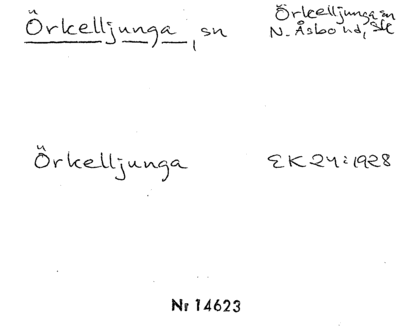 Örkelljunga, sn
Örkelljunga sn
N. Åsbo hd, Sk
Örkelljunga
EK 24:1928
Nr 14623